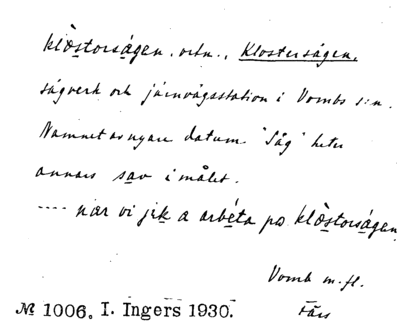 klȯ̀storsågen. ortn., Klostersågen,
sågverk och järnvägsstation i Vombs s:n.
Namnet av nyare datum. "Såg" heter
annars sav i målet.
---- nær vi jik a arbéta po klȯ̀storsågen
Vomb m. fl.
№ 1006. I. Ingers 1930. Färs